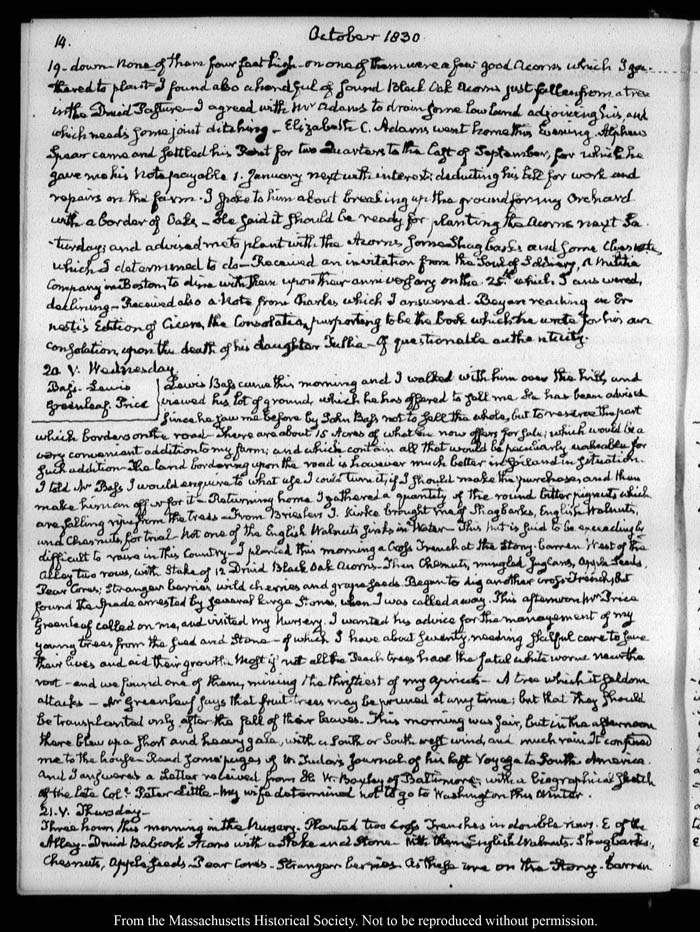 14.
October 1830
19- down- None of them four feet high- on one of them were a few good Acorns which I ga-
thered to plant I found also a handful of sound Black Oak Acorns just fallen from a tree
in the Druid Pasture- I agreed with Mr Adams to drain some low land adjoining his, and
which needs some joint ditching- Elizabeth C. Adams went home this Evening. Alpheus
Spear came and settled his Rent for two Quarters to the last of September, for which he
gave me his Note payable 1. January next with interest; deducting his bill for work and
repairs on the farm. I spoke to him about breaking up the ground for my Orchard
with a border of Oaks- He said it should be ready for planting the Acorns next Sa-
turday; and advised me to plant with the Acorns some Shagbarks and some Chesnuts
which I determined to do- Received an invitation from the Soul of Soldiery, a Militia
Company in Boston to dine with them upon their anniversary on the 25th. which I answered,
declining- Received also a Note from Charles which I answered. Began reading in Er-
nesti's Edition of Cicero, the Consolatio, purporting to be the book which he wrote for his own
consolation, upon the death of his daughter Tullia- Of questionable authenticity.
20 V. Wednesday.
Bass. Lewis
Greenleaf. Price
Lewis Bass came this morning and I walked with him over the hill, and
viewed his lot of ground, which he has offered to sell me. He has been advised
since he saw me before by John Bass not to sell the whole, but to reserve the part
which borders on the road- There are about 15 Acres of what he now offers for sale; which would be a
very convenient addition to my farm; and which contain all that would be peculiarly valuable for
such addition- The land bordering upon the road is however much better in soil and in situation.
I told Mr Bass I would enquire to what use I could turn it, if I should make the purchase; and then
make him an offer for it- Returning home I gathered a quantity of the round bitter pignuts, which
are falling ripe from the trees- From Briesler J. Kirke brought me of Shagbarks, English Walnuts,
and Chesnuts, for trial- Not one of the English Walnuts sinks in Water- This Nut is said to be exceedingly
difficult to raise in this Country- I planted this morning a Cross Trench at the Stony-barren West of the
Alley two rows, with Stake of 12 Druid Black Oak Acorns- Then Chesnuts, mingled Juglans, Apple Seeds,
Pear Cores, Stranger berries wild cherries and grape seeds. Began to dig another cross Trench, but
found the Spade arrested by several large Stones, when I was called away. This afternoon Mr Price
Greenleaf called on me, and visited my Nursery. I wanted his advice for the management of my
young trees from the seed and Stone- of which I have about seventy, needing skilful care to save
their lives and aid their growth. Most if not all the Peach trees have the fatal white worm near the
root- and we found one of them, mining the thriftiest of my Apricots- A tree which it seldom
attacks- Mr Greenleaf says that fruit-trees may be pruned at any time; but that they should
be transplanted only after the fall of their leaves. This morning was fair, but in the afternoon
there blew up a short and heavy gale, with a South or South west wind, and much rain It confined
me to the house- Read some pages of Dr Tudor's Journal of his last Voyage to South America.
And I answered a Letter received from H. W. Bayley of Baltimore; with a biographical Sketch
of the late Coll. Peter Little- My wife determined not to go to Washington this Winter.
21. V. Thursday-
Three hours this morning in the Nursery. Planted two Cross Trenches in double rows. E of the
Alley- Druid Babcock Acorns with a Stake and Stone- With them English Walnuts. Shagbarks,
Chesnuts, Apple seeds- Pear Cores- Stranger berries. As these were on the Stony-barren
From the Massachusetts Historical Society. Not to be reproduced without permission.